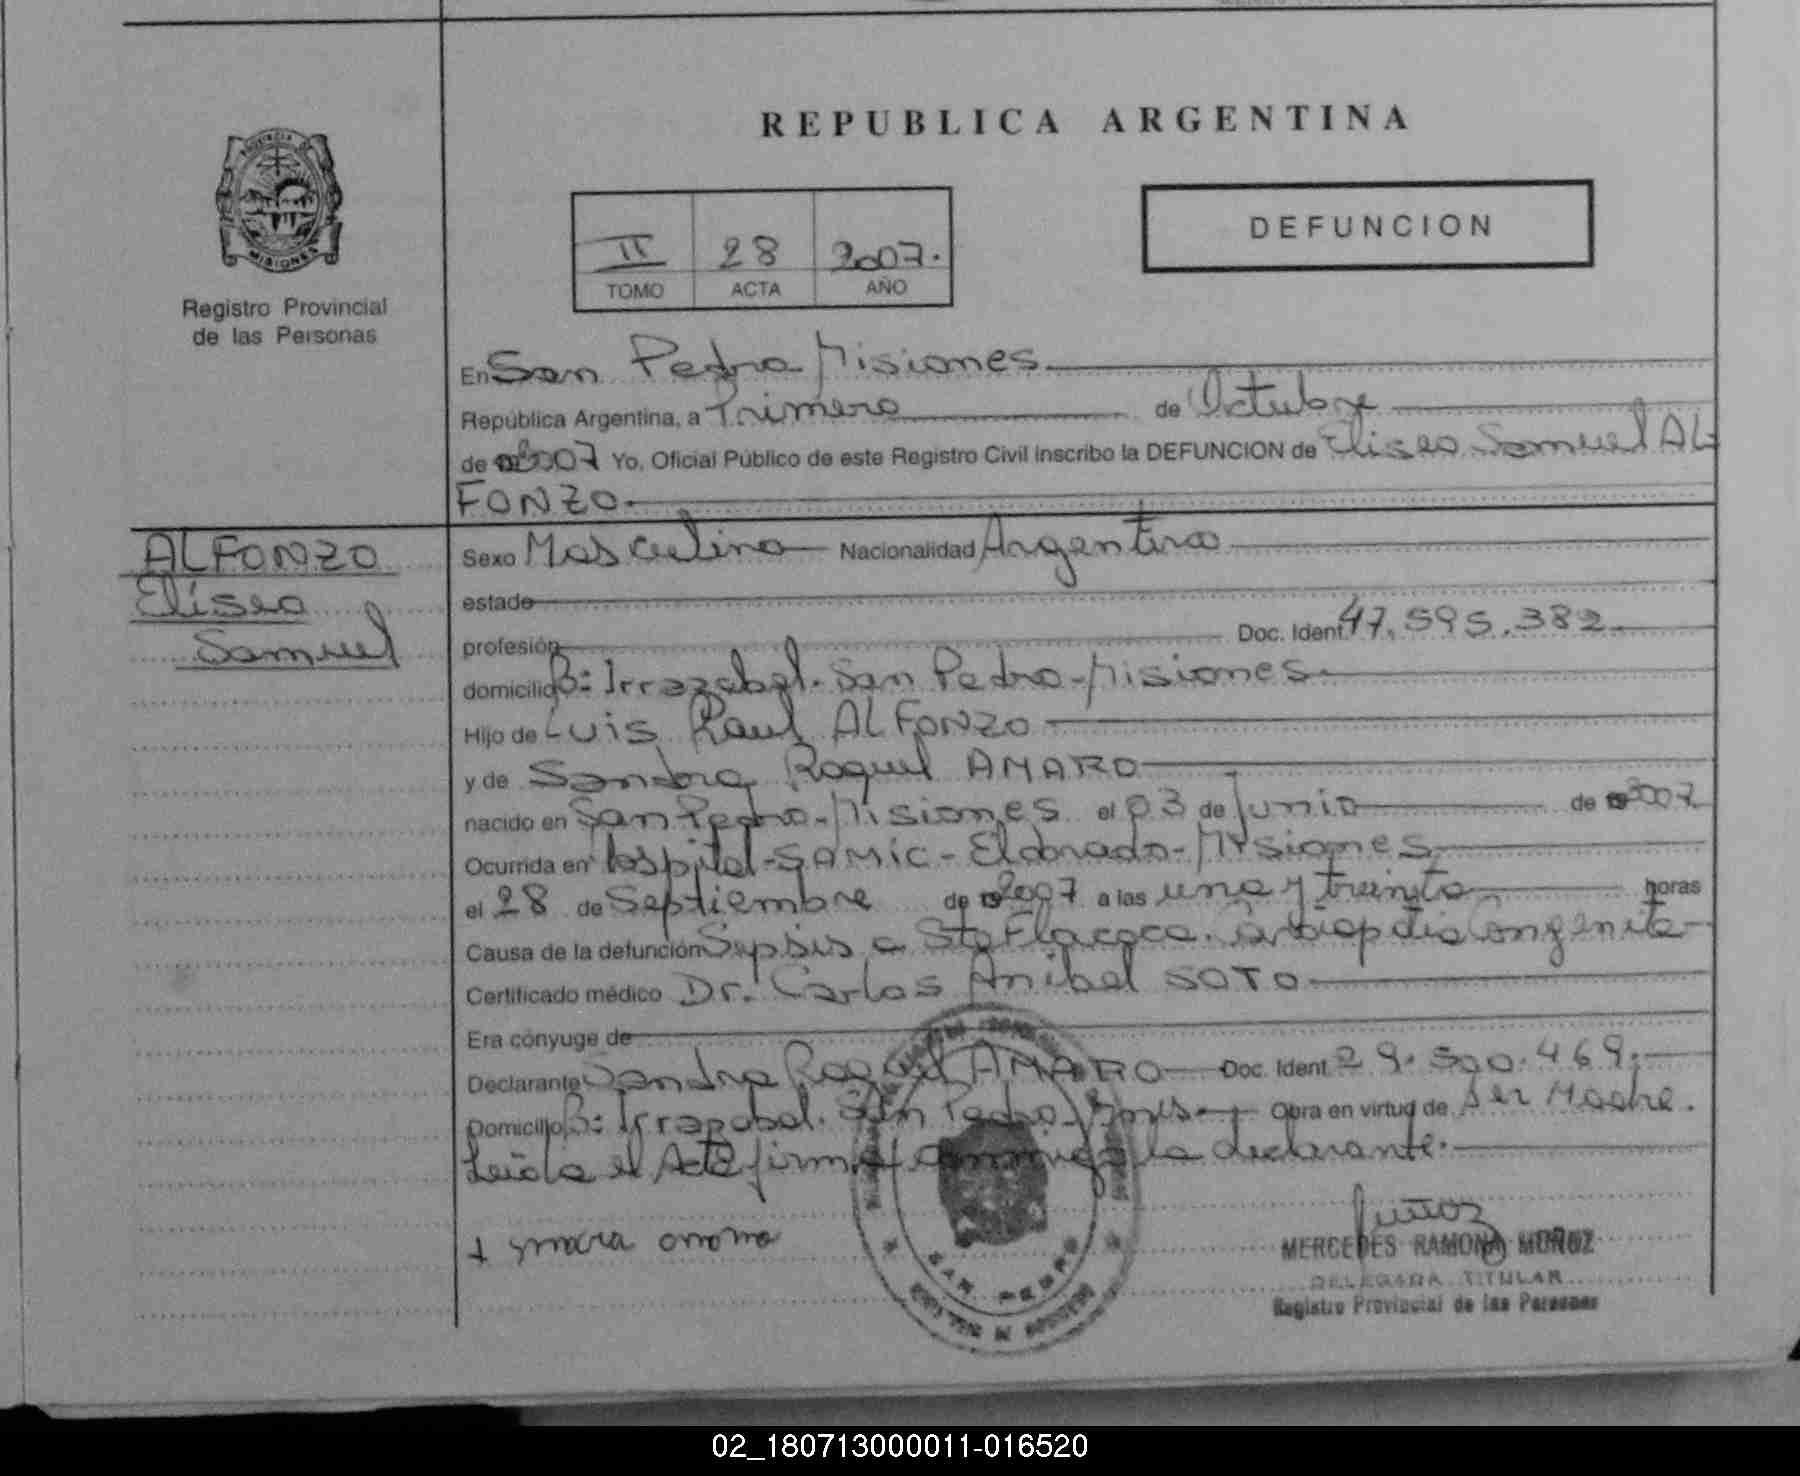 REPUBLICA ARGENTINA
PROVINCIA DE
MISIONES
Registro Provincial
de las Personas
DEFUNCION
II 28 2007.
TOMO ACTA AÑO
En San Pedro Misiones
República Argentina, a Primero de Octubre
de 2007 Yo, Oficial Público de este Registro Civil inscribo la DEFUNCION de Eliseo Samuel AL-
FONZO.
ALFONZO
Eliseo
Samuel
Sexo Masculino Nacionalidad Argentina
estado
profesión Doc. Ident. 47.595.382.
domicilio B: Irrazabal. San Pedro-Misiones.
Hijo de Luis Raul ALFONZO
y de Sandra Raquel AMARO
nacido en San Pedro-Misiones el 03 de Junio de 2007
Ocurrida en Hospital-SAMIC-Eldorado-Misiones
el 28 de Septiembre de 2007 a las una y treinta horas
Causa de la defunción Sepsis a Congenita
Certificado médico Dr. Carlos Anibal SOTO
Era cónyuge de
Declarante Sandra Raquel AMARO Doc. Ident. 29.500.469.
Domicilio B: Irrazabal. San Pedro Obra en virtud de ser Madre.
Leída el Acta firma conmigo la declarante.
Muñoz
MERCEDES RAMONA MUÑOZ
DELEGADA TITULAR
Registro Provincial de las Personas
SAN PEDRO
02_180713000011-016520